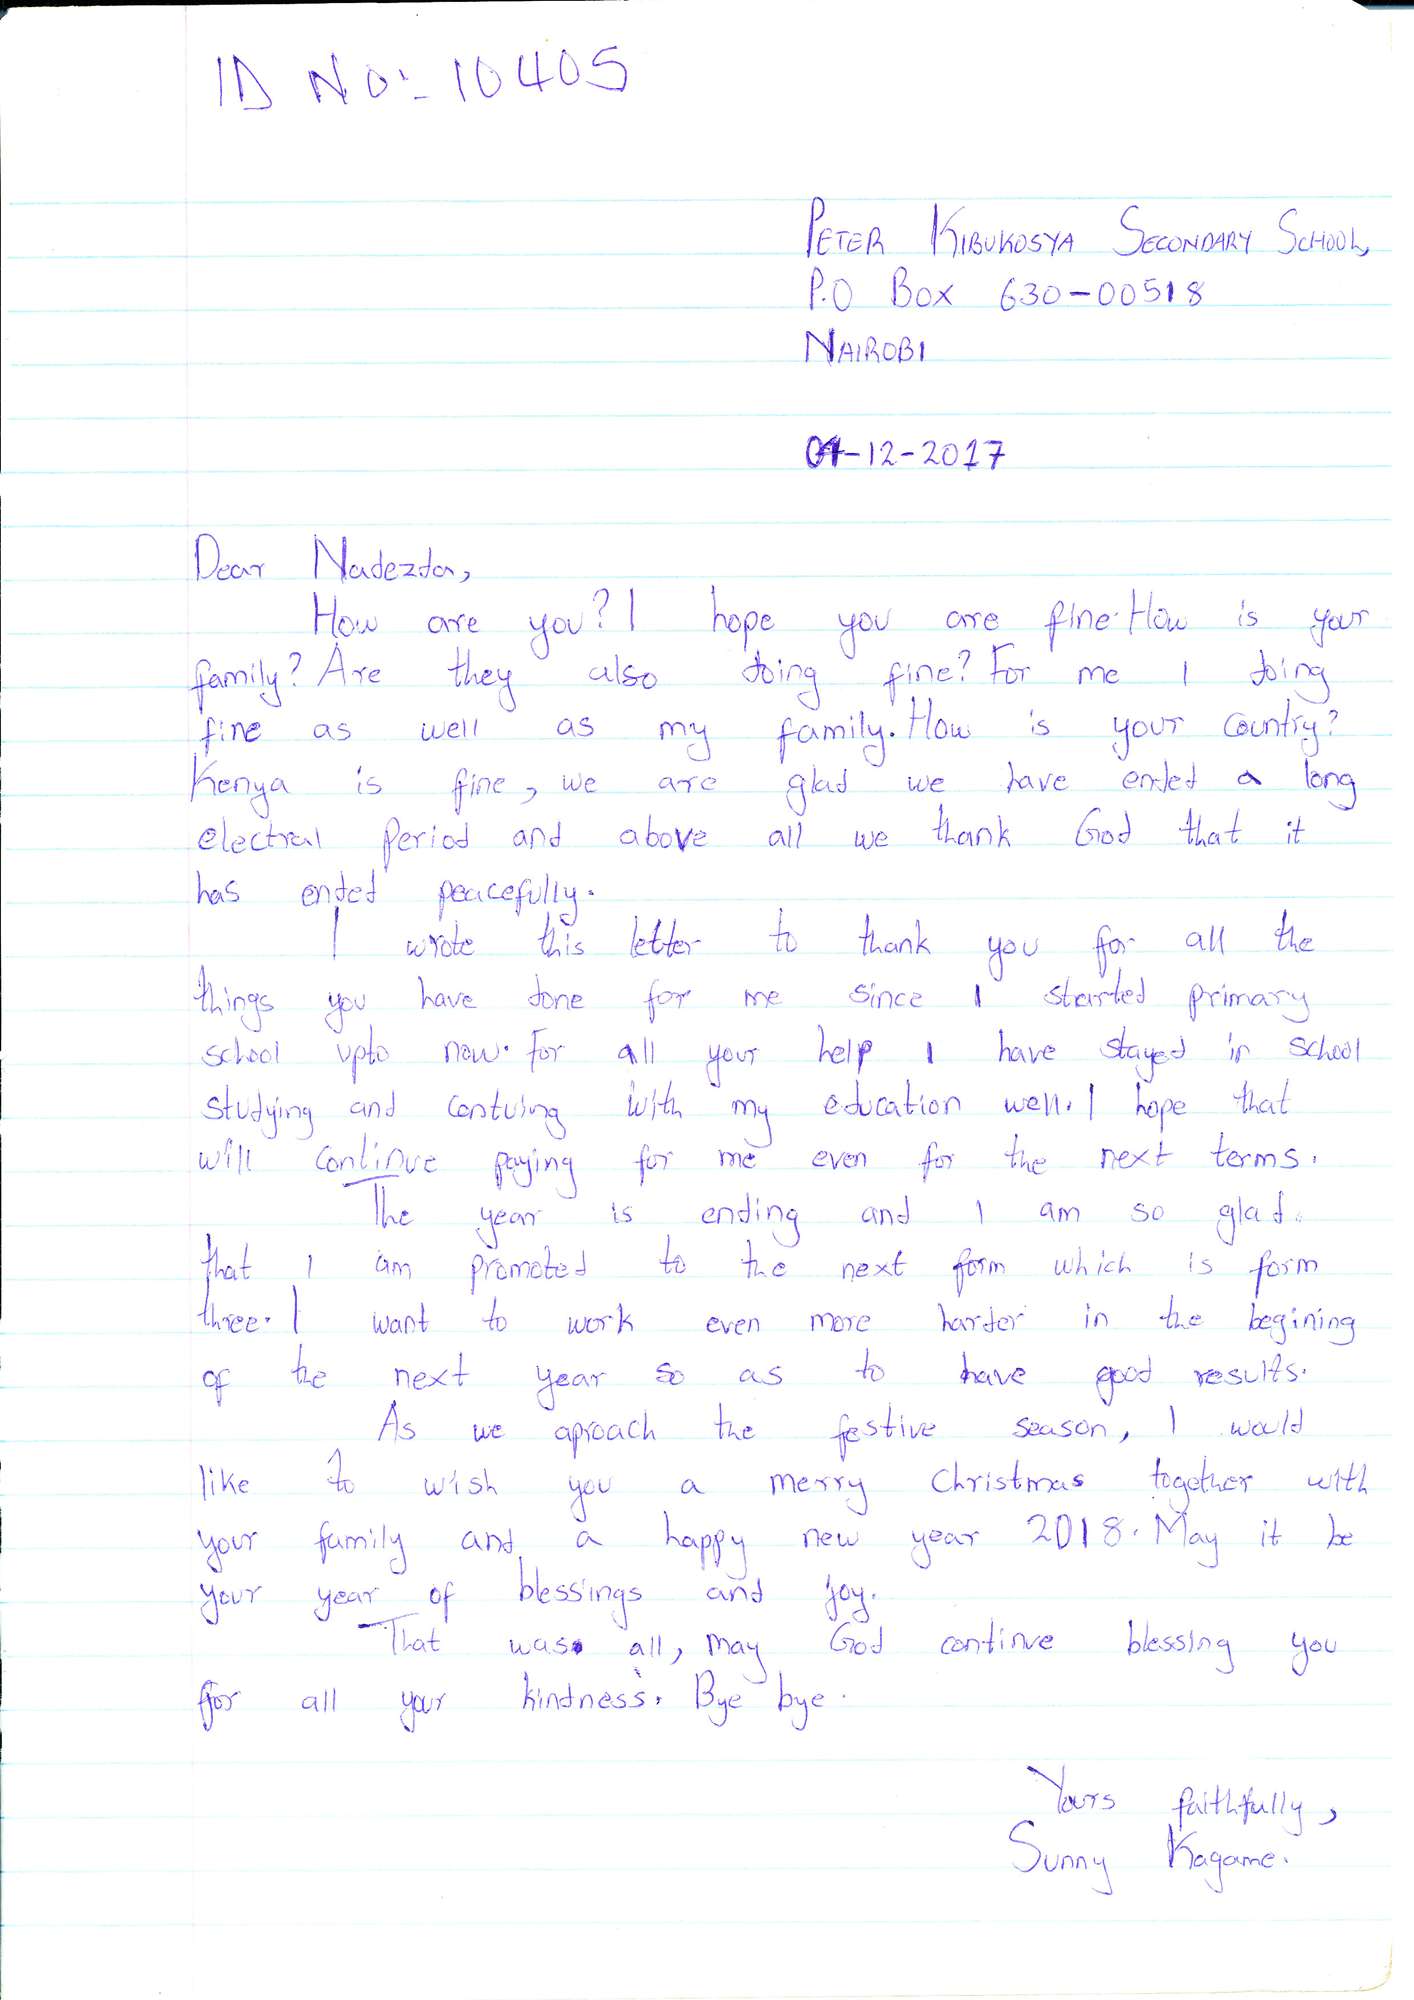 ID NO:- 10405
PETER KIBUKOSYA SECONDARY SCHOOL,
P.O BOX 630-00518
NAIROBI
-12-2017
Dear Nadezda,
How are you? I hope you are fine. How is your
family? Are they also doing fine? For me I doing
fine as well as my family. How is your country?
Kenya is fine, we are glad we have ended a long
electral period and above all we thank God that it
has ended peacefully.
I wrote this letter to thank you for all the
things you have done for me since I started primary
school upto now. For all your help I have stayed in school
studying and contuing with my education well. I hope that
will continue paying for me even for the next terms.
The year is ending and I am so glad.
that I am promoted to the next form which is form
three. I want to work even more harder in the begining
of the next year so as to have good results.
As we aproach the festive season, I would
like to wish you a merry christmas together with
your family and a happy new year 2018. May it be
your year of blessings and joy.
That was all, may God continue blessing you
for all your kindness. Bye bye.
Yours faithfully,
Sunny Kagame.